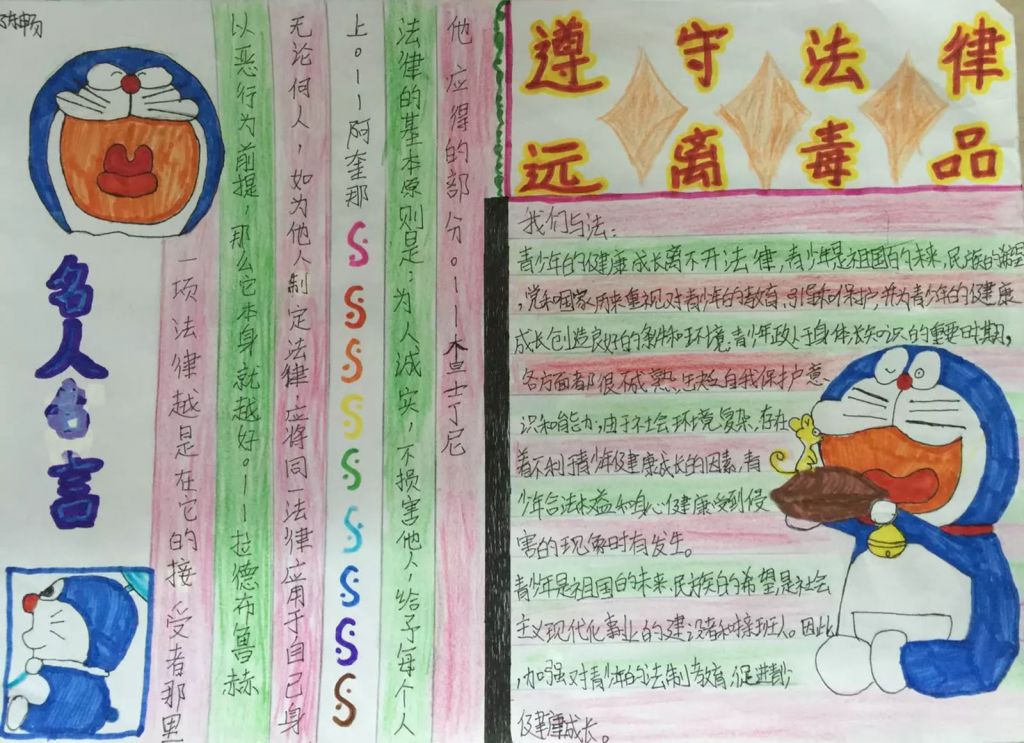 名人名言
一项法律越是在它的接受者那里
以恶行为前提，那么它本身就越好。——拉德布鲁赫
无论何人，如为他人制定法律，应将同一法律应用于自己身
上。——阿奎那
法律的基本原则是：为人诚实，不损害他人，给予每个人
他应得的部分。——查士丁尼
遵守法律
远离毒品
我们与法：
青少年的健康成长离不开法律，青少年是祖国的未来，民族的希望
，党和国家历来重视对青少年的教育、引导和保护，并为青少年的健康
成长创造良好的条件和环境。青少年正处于身体长知识的重要时期，
各方面都很不成熟，缺乏自我保护意
识和能力，由于社会环境复杂，存在
着不利于青少年健康成长的因素，青
少年合法权益和身心健康受到侵
害的现象时有发生。
青少年是祖国的未来，民族的希望，是社会
主义现代化事业的建设者和接班人。因此
，加强对青少年的法制教育，促进青少
健康成长。